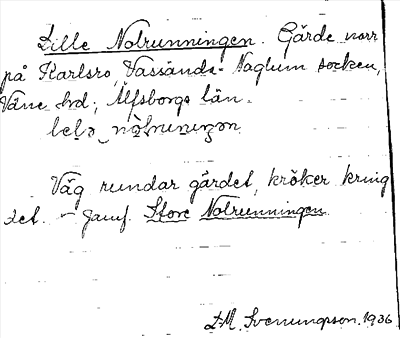 Lille Notrunningen. Gärde norr
på Karlsro, Vassända-Naglum socken,
Väne hd; Älfsborgs län.
Väg rundar gärdet, kröker kring
det. - Jämf. Store Notrunningen.
D.M. Svenungsson. 1936